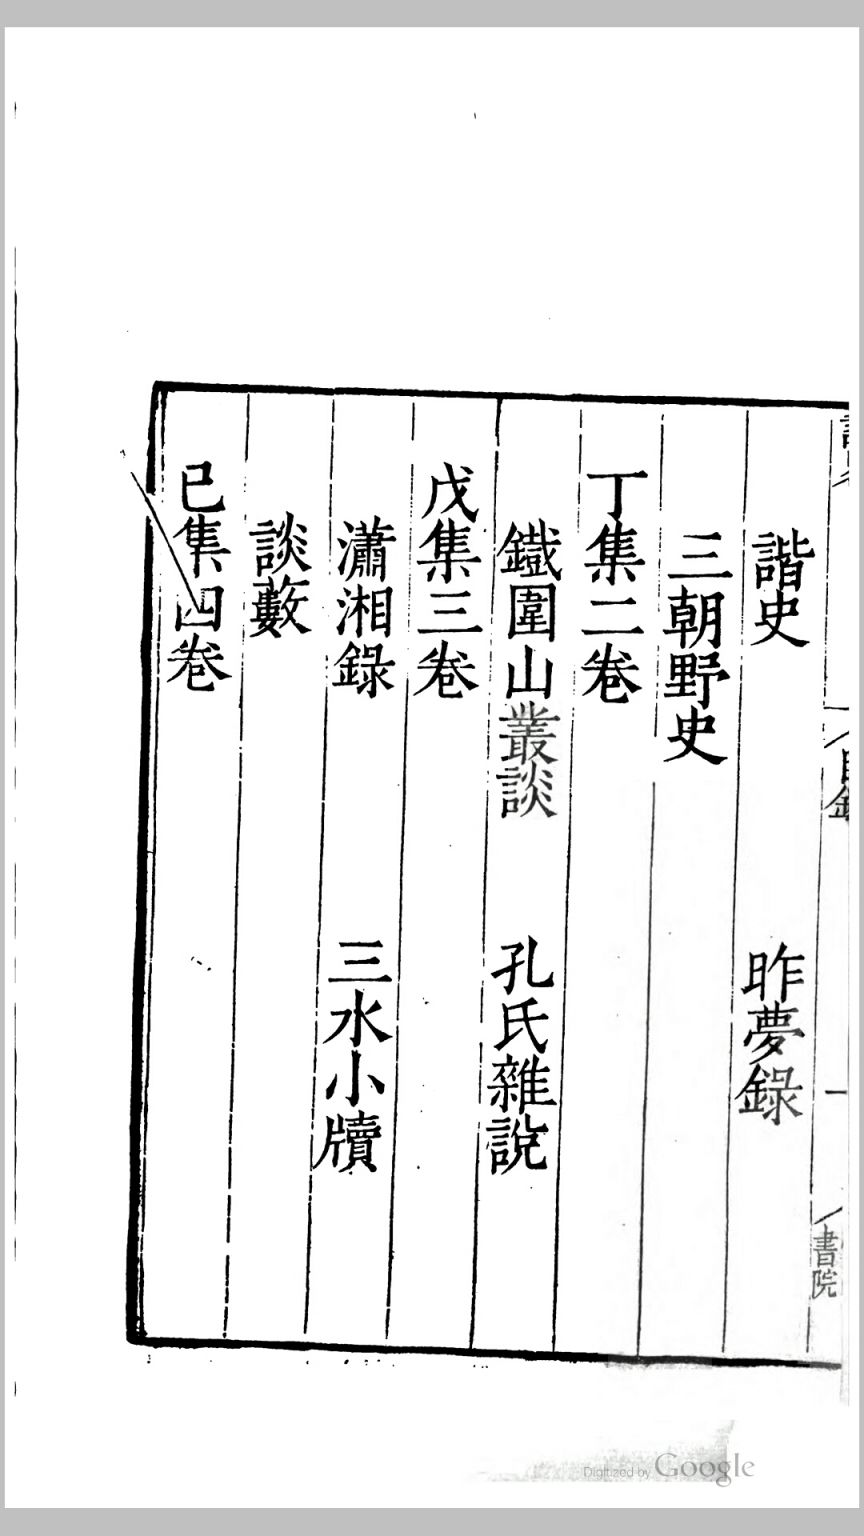 諧史　昨夢錄
三朝野史
丁集二卷
鐵圍山叢談　孔氏雜說
戊集三卷
瀟湘錄　三水小牘
談藪
已集四卷
一
書院
Digitized by Google